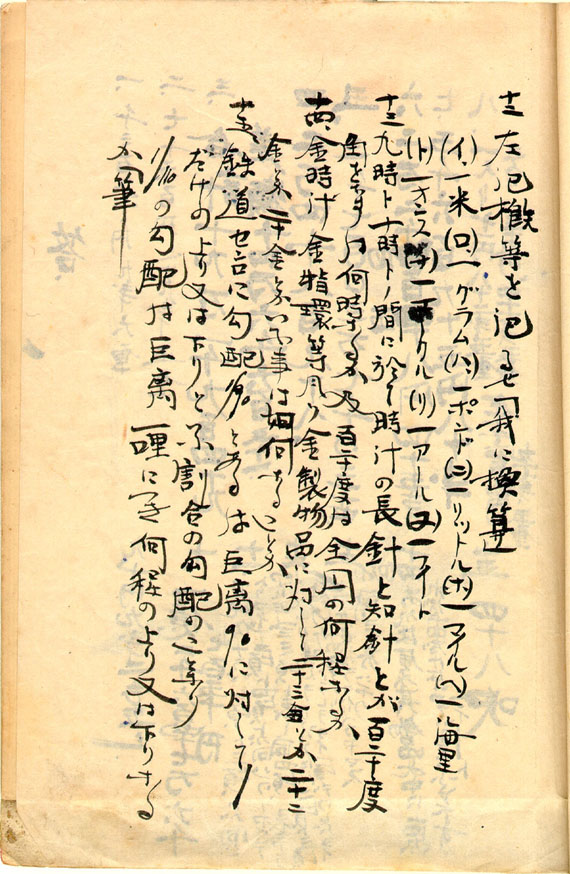 十二 左記概等を記るせ「我に換算
(イ)一米(ロ)一グラム(ハ)一ポンド(ニ)一リットル(ホ)一マイル(ヘ)一海里
(ト)一オンス(チ)一 クル(リ)一アール(ヌ)一フイート
十三 九時ト十時トノ間に於て時汁の長針と知針とが百二十度
角をなすハ何時なるか及百二十度は全円の何程なるか
十四、金時汁金指環等凡ソ金製物品に対して二十三金とか二十二
金とか二十金とかいふ事は如何なることか
十五、鉄道 に勾配 とあるは巨離 に対して1
だけの上り又は下りと云 割合の勾配のことなり
の勾配は巨離一哩につき何程の上り又は下りする
か「筆